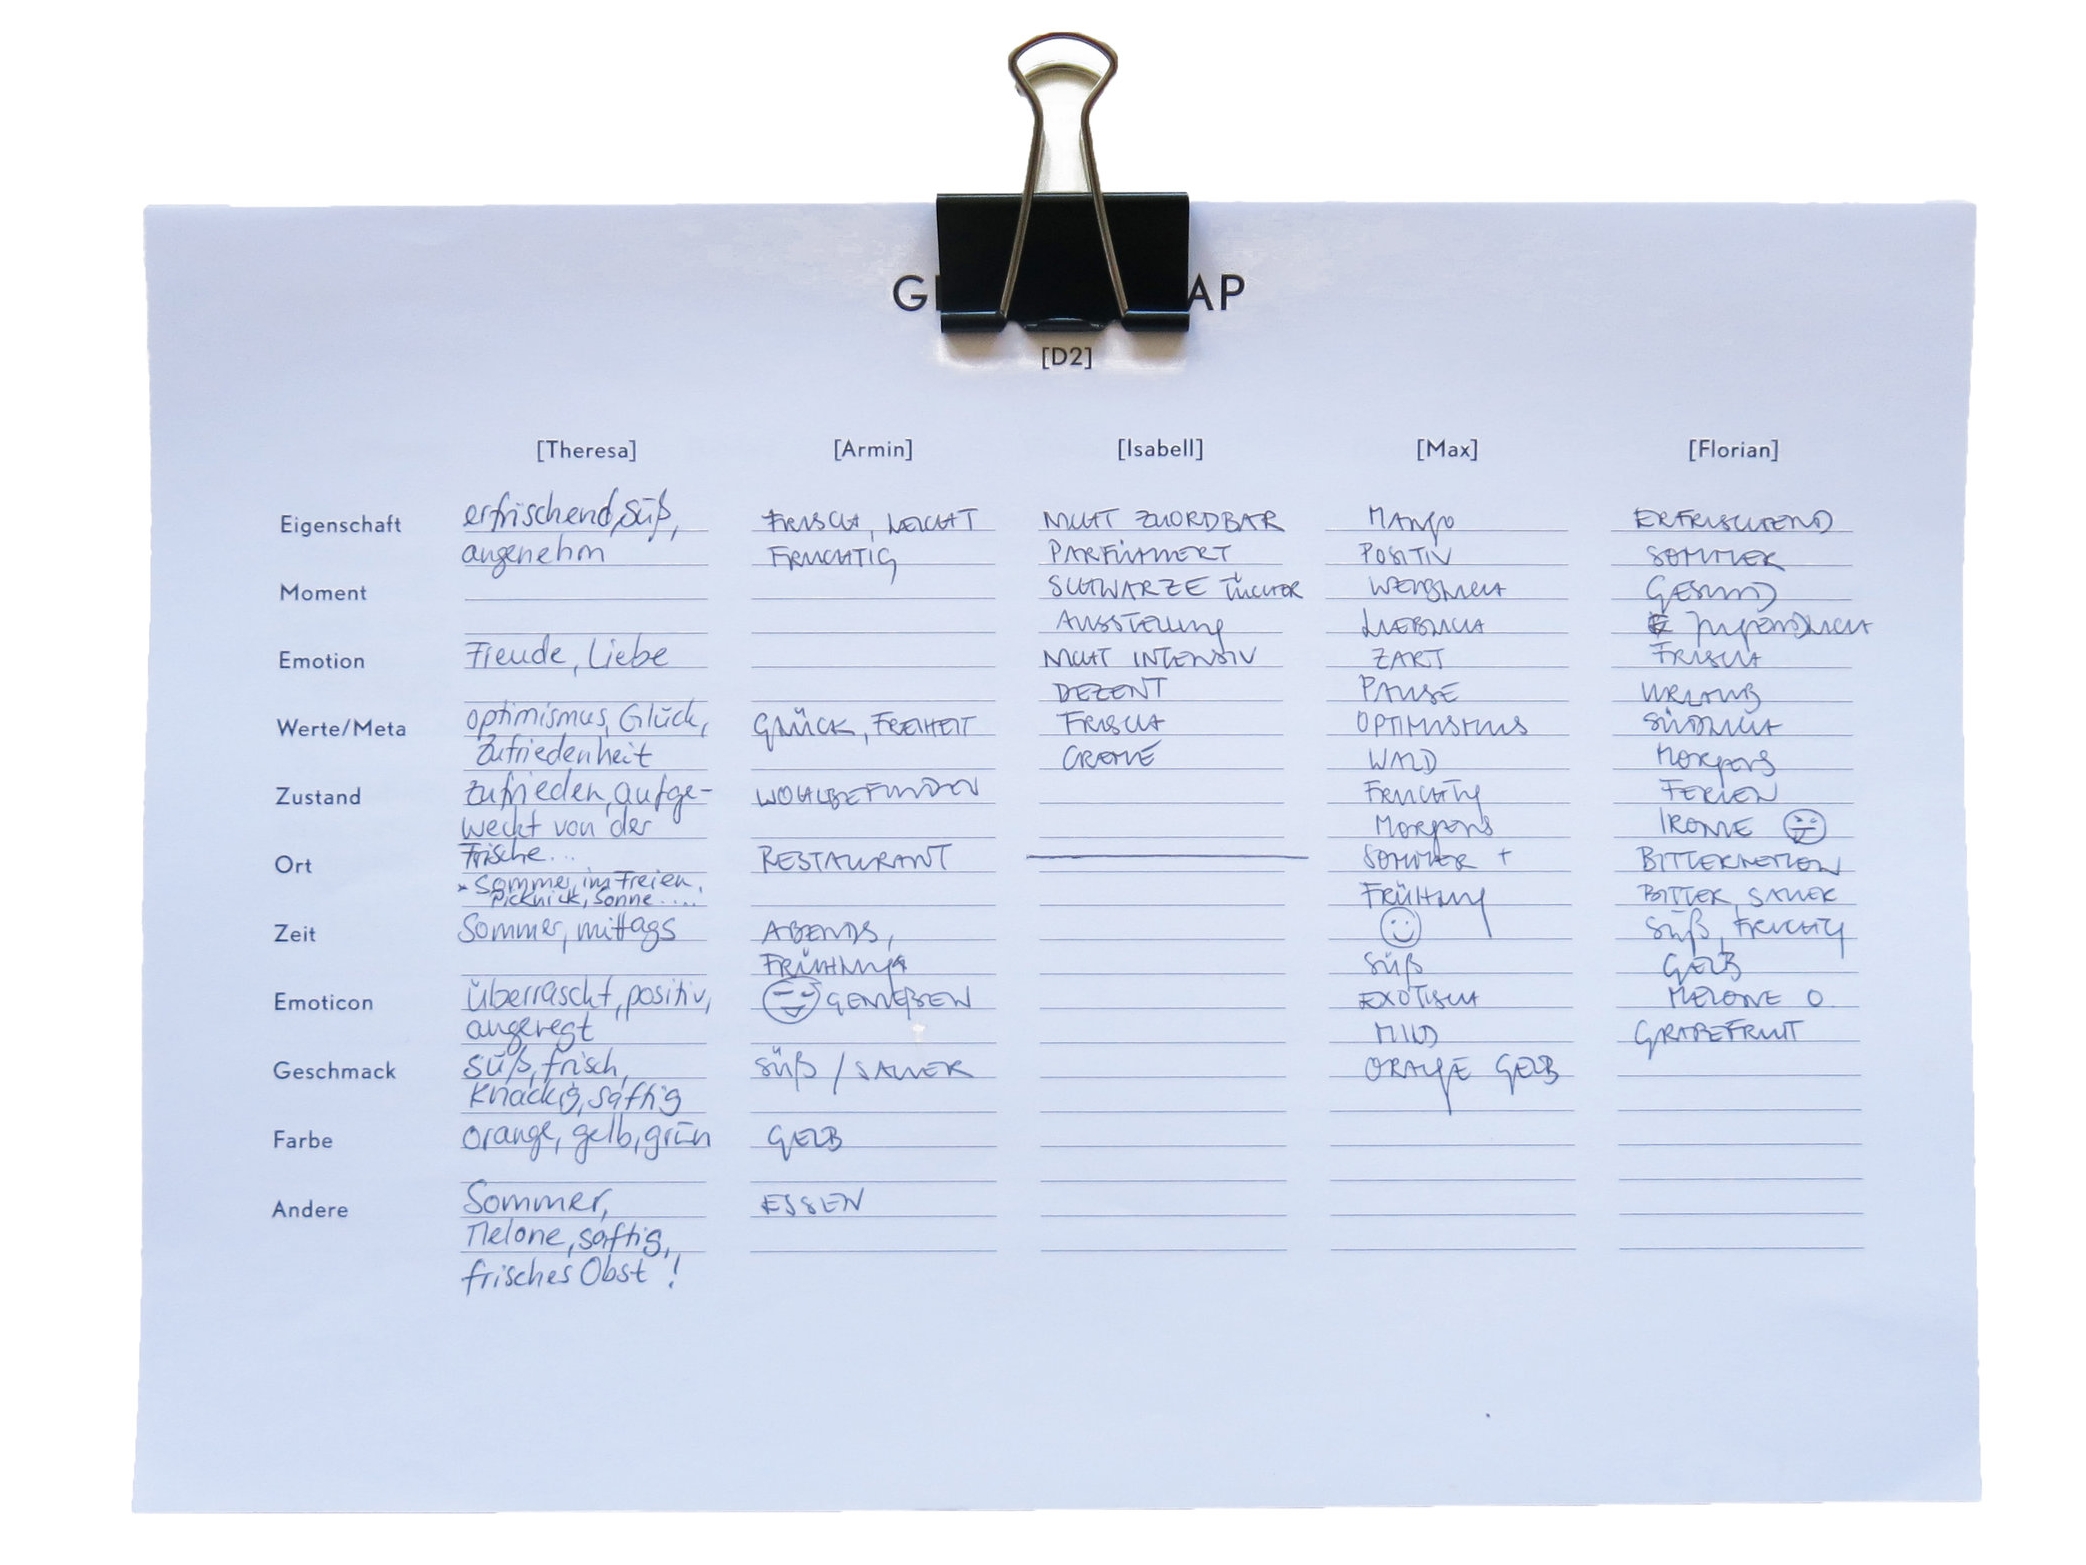 G AP
[D2]
[Theresa] [Armin] [Isabell] [Max] [Florian]
Eigenschaft erfrischend, süß, FRISCH, LEICHT NICHT ZUORDBAR MANGO ERFRISCHEND
angenehm FRUCHTIG PARFÜMIERT POSITIV SOMMER
Moment SCHWARZE TÜCHER WEIBLICH GESUND
AUSSTELLUNG LIEBLICH JUGENDLICH
Emotion Freude, Liebe NICHT INTENSIV ZART FRISCH
DEZENT PAUSE URLAUB
Werte/Meta Optimismus, Glück, GLÜCK, FREIHEIT FRISCH OPTIMISMUS SÜDLICH
Zufriedenheit CREME WALD MORGENS
Zustand Zufrieden, aufge- WOHLBEFINDEN FRUCHTIG FERIEN
weckt von der MORGENS IRONIE
Ort Frische... RESTAURANT SOMMER + BITTERMELONE
* Sommer, im Freien, FRÜHLING BITTER, SAUER
Picknick, Sonne....
Zeit Sommer, mittags ABENDS, SÜß, FRUCHTIG
FRÜHLING SÜß GELB
Emoticon Überrascht, positiv, GENIEßEN EXOTISCH MELONE O.
angeregt MILD GRAPEFRUIT
Geschmack Süß, frisch, SÜß / SAUER ORANGE GELB
Knackig, saftig
Farbe Orange, gelb, grün GELB
Andere Sommer, ESSEN
Melone, saftig,
frisches Obst !